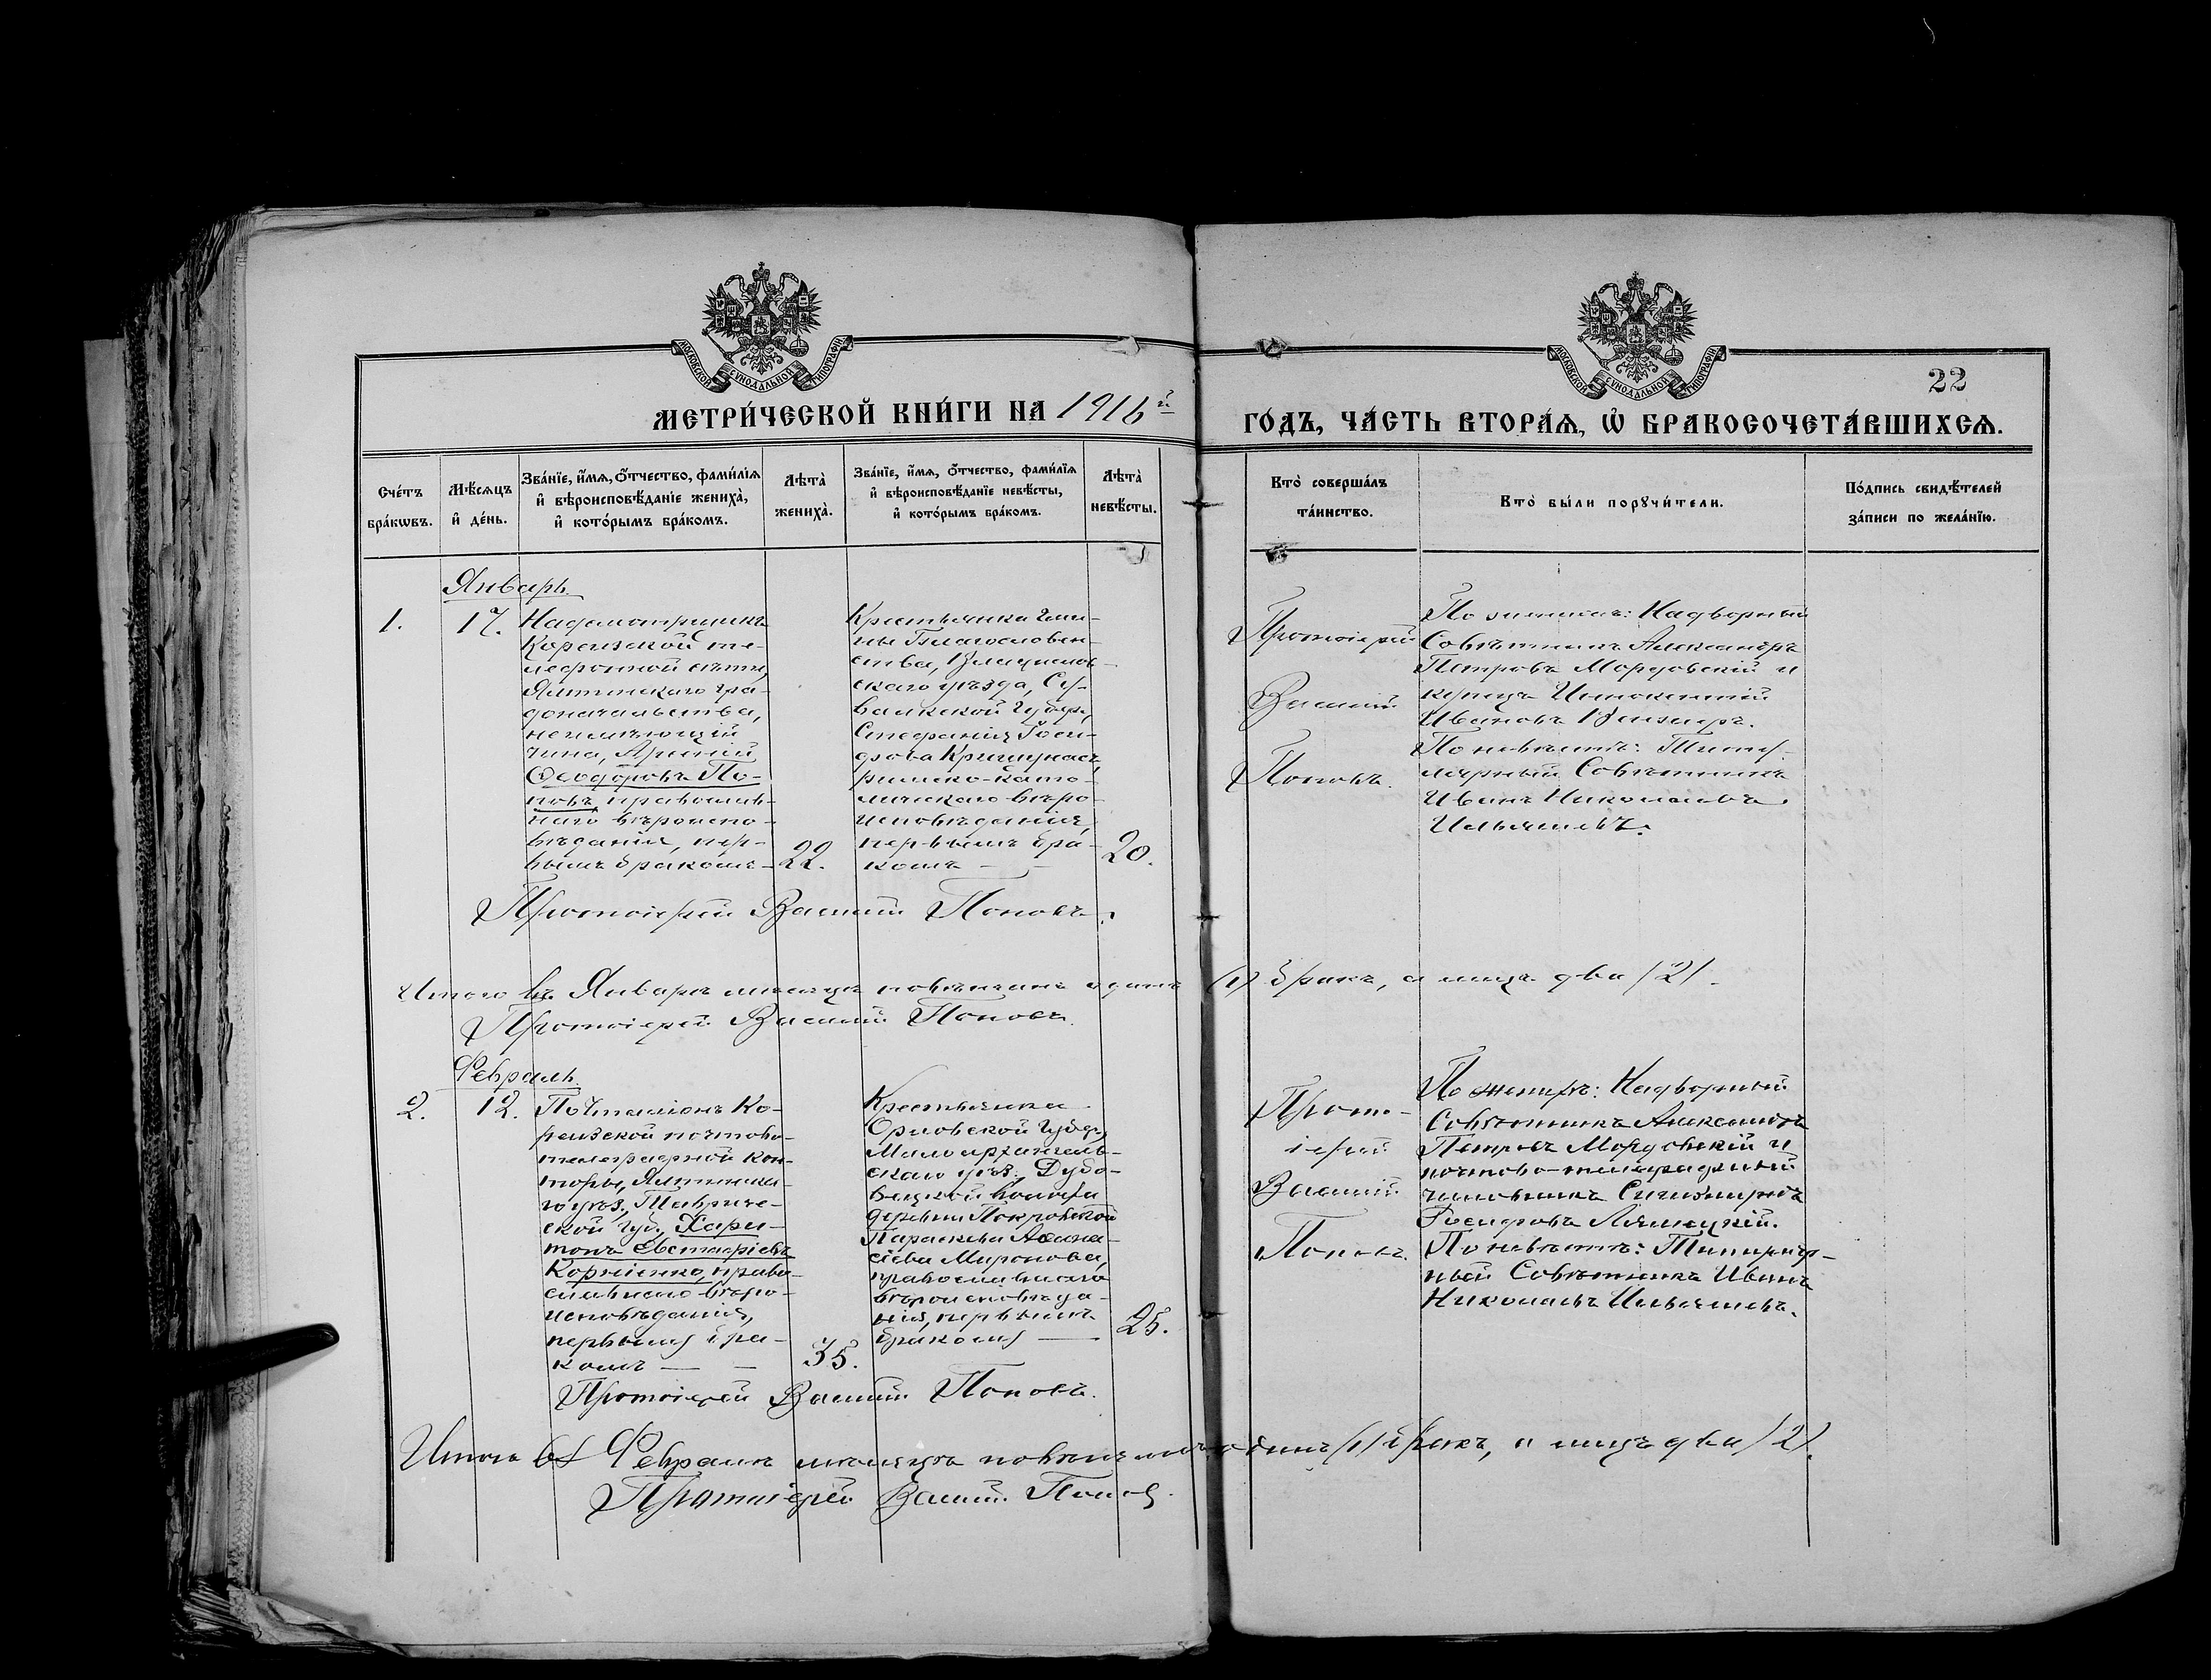 МОСКОВСКОЙ СѴНОДАЛЬНОЙ ТИПОГРАФІИ
МОСКОВСКОЙ СѴНОДАЛЬНОЙ ТИПОГРАФІИ
22
МЕТРИ́ЧЕСКОЙ КНИ́ГИ НА 1916й
ГО́ДЪ, ЧА́СТЬ ВТОРА́Ѧ, Ѡ҆ БРАКОСОЧЕТА́ВШИХСѦ.
Сче́тъ
бра́кѡвъ.
Мѣ́сѧцъ
и҆ де́нь.
Зва́нїе, и҆́мѧ, ѻ҆́тчество, фами́лїѧ
и҆ вѣроисповѣ́данїе жениха̀,
и҆ кото́рымъ бра́комъ.
Лѣта̀
жениха̀.
Зва́нїе, и҆́мѧ, ѻ҆́тчество, фами́лїѧ
и҆ вѣроисповѣ́данїе невѣ́сты,
и҆ кото́рымъ бра́комъ.
Лѣта̀
невѣ́сты.
Кто̀ соверша́лъ
та́инство.
Кто̀ бы́ли порꙋчи́тели.
По́дпись свидѣ́телей
за́писи по жела́нїю.
Январь
1.
17.
Надсмотрщикъ
Кореизской те-
лефонной сѣти,
Ялтинскаго гра-
доначальства,
неимѣющій
чина,
Ѳеодоровъ По-
повъ, православ-
наго вѣроиспо-
вѣданія, пер-
вымъ бракомъ
22.
Крестьянка гми-
ны Благословен-
ства,
скаго уѣзда, Су-
валкской губер.,
Стефанія Іоси-
фова
римско-като-
лическаго вѣро-
исповѣданія,
первымъ бра-
комъ
20.
Протоіерей
Василій
Поповъ.
По женихѣ: Надворный
Совѣтникъ Александръ
Петровъ Мордовскій и
купецъ Иннокентій
Ивановъ
По невѣстѣ: Титу-
лярный Совѣтникъ
Иванъ Николаевъ
Ильяшевъ.
Протоіерей Василій Поповъ.
Итого въ Январѣ мѣсяцѣ повѣнчанъ одинъ (1) бракъ, а лицъ два (2).
Протоіерей Василій Поповъ.
Февраль
2.
12.
Почталіонъ Ко-
реизской почтово-
телеграфной кон-
торы, Ялтинска-
го уѣз., Тавриче-
ской губ., Хари-
тонъ Евстафіевъ
Корніенко, право-
славнаго вѣро-
исповѣданія,
первымъ бра-
комъ
35.
Крестьянка
Орловской губер.,
Малоархангель-
скаго уѣз., Дубо-
вецкой волости
деревни Покровской
Параскева Аѳана-
сіева Миронова,
православнаго
вѣроисповѣда-
нія, первымъ
бракомъ
25.
Прото-
іерей
Василій
Поповъ.
По женихѣ: Надворный
Совѣтникъ Александръ
Петровъ Мордовскій и
почтово-телеграфный
чиновникъ Сигизмундъ
Іосифовъ
По невѣстѣ: Титуляр-
ный Совѣтникъ Иванъ
Николаевъ Ильяшевъ.
Протоіерей Василій Поповъ.
Итого въ Февралѣ мѣсяцѣ повѣнчанъ одинъ (1) бракъ, а лицъ два (2).
Протоіерей Василій Поповъ.